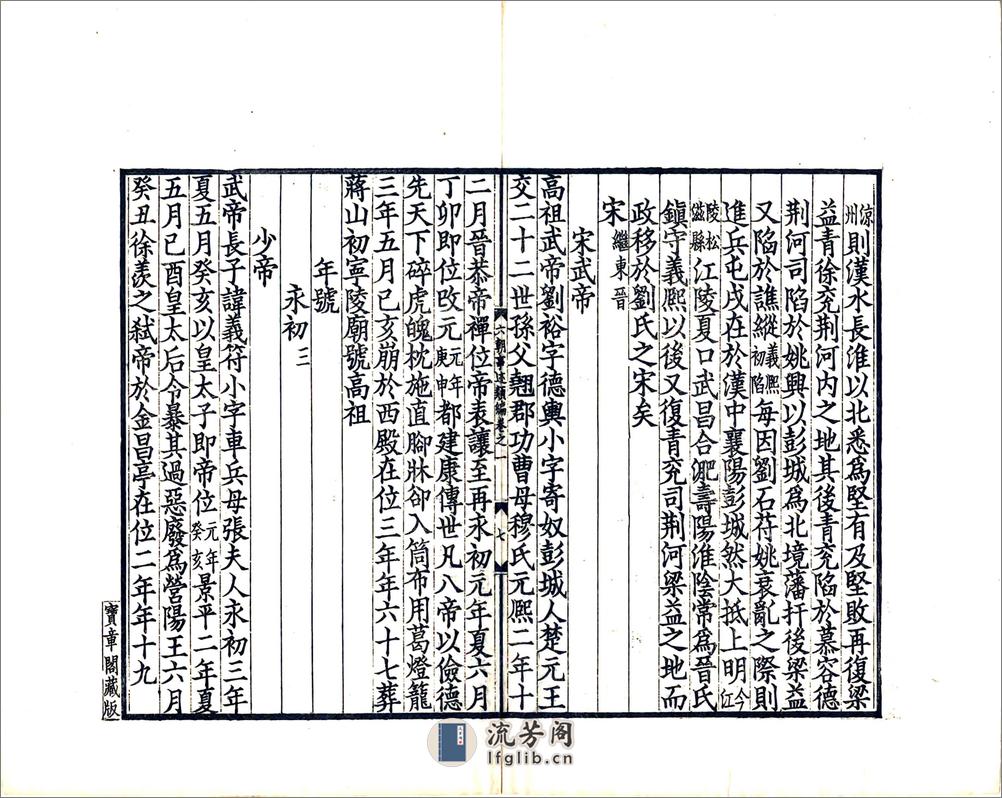 涼州則漢水長淮以北悉爲堅有及堅敗再復梁
益青徐兖荆河内之地其後青兖陷於慕容德
荆河司陷於姚興以彭城爲北境藩扞後梁益
又陷於譙縱義熙初陷每因劉石苻姚衰亂之際則
進兵屯戍在於漢中襄陽彭城然大抵上明今江
陵松滋縣江陵夏口武昌合淝壽陽淮陰常爲晉氏
鎭守義熙以後又復青兖司荆河梁益之地而
政移於劉氏之宋矣
宋繼東晉
宋武帝
高祖武帝劉裕字德輿小字寄奴彭城人楚元王
交二十二世孫父翹郡功曹母穆氏元熙二年十
六朝事迹類編卷之一
七
二月晉恭帝禪位帝表讓至再永初元年夏六月
丁卯即位攺元元年庚申都建康傳世凡八帝以儉德
先天下碎虎魄枕施直腳牀卻入筒布用葛燈籠
三年五月己亥崩於西殿在位三年年六十七葬
蔣山初寧陵廟號高祖
年號
永初三
少帝
武帝長子諱義符小字車兵母張夫人永初三年
夏五月癸亥以皇太子即帝位元年癸亥景平二年夏
五月己酉皇太后令暴其過惡廢爲營陽王六月
癸丑徐羨之弑帝於金昌亭在位二年年十九
寶章閣藏版
流芳阁
lfglib.cn